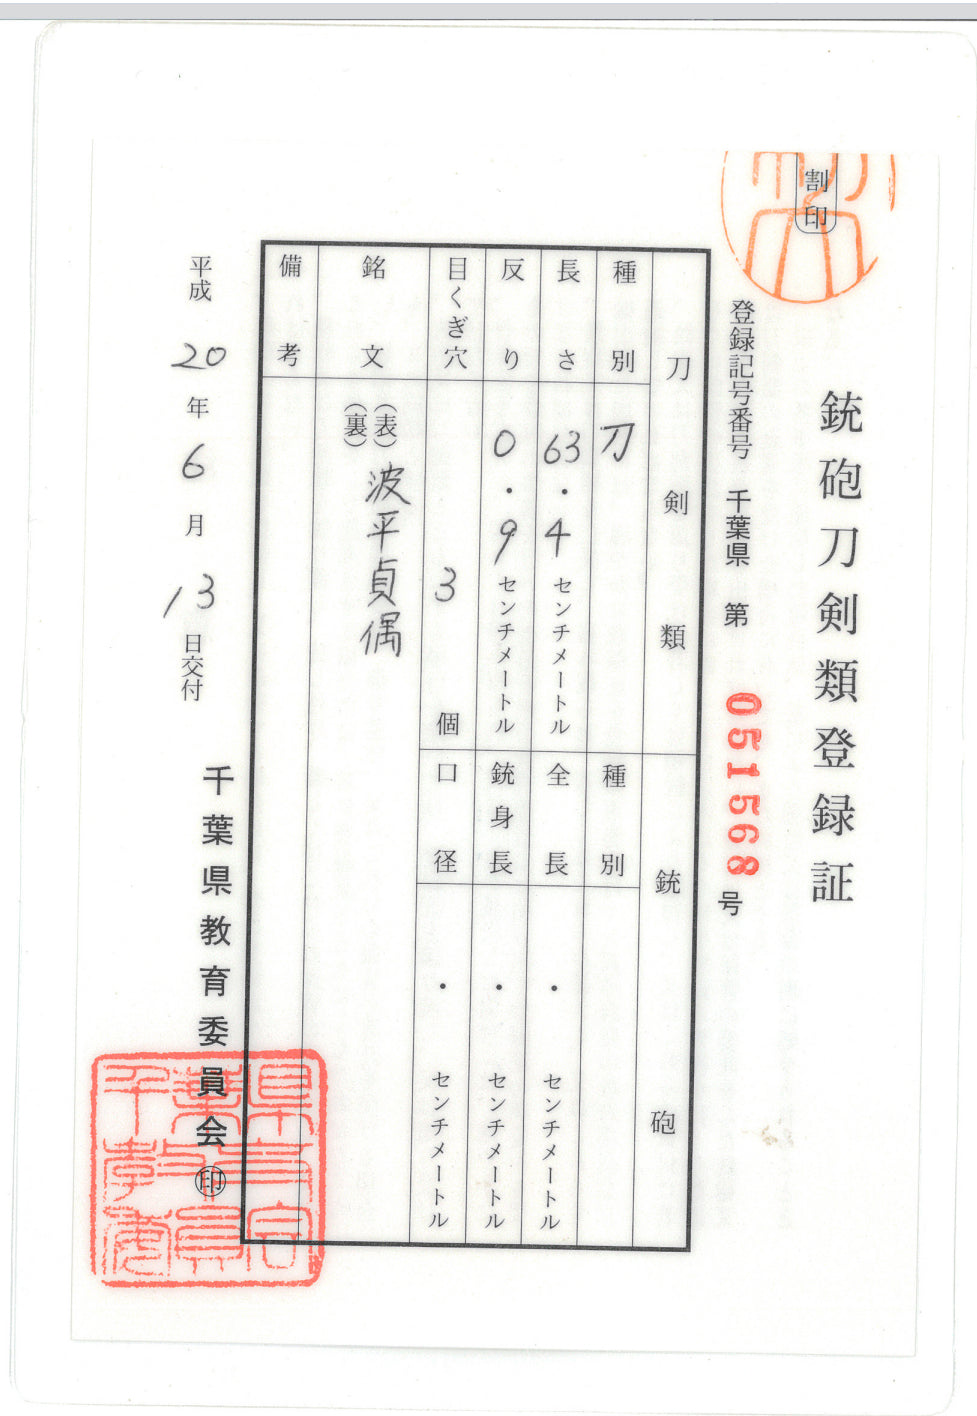 割印
銃砲刀剣類登録証
登録記号番号 千葉県 第 051568 号
刀剣類
種別 刀
長さ 63.4センチメートル
反り 0.9センチメートル
目くぎ穴 3個
銘文 (表)波平貞偶
(裏)
備考
銃砲
種別
全長 ・ センチメートル
銃身長 ・ センチメートル
口径 ・ センチメートル
平成20年6月13日交付
千葉県教育委員会㊞